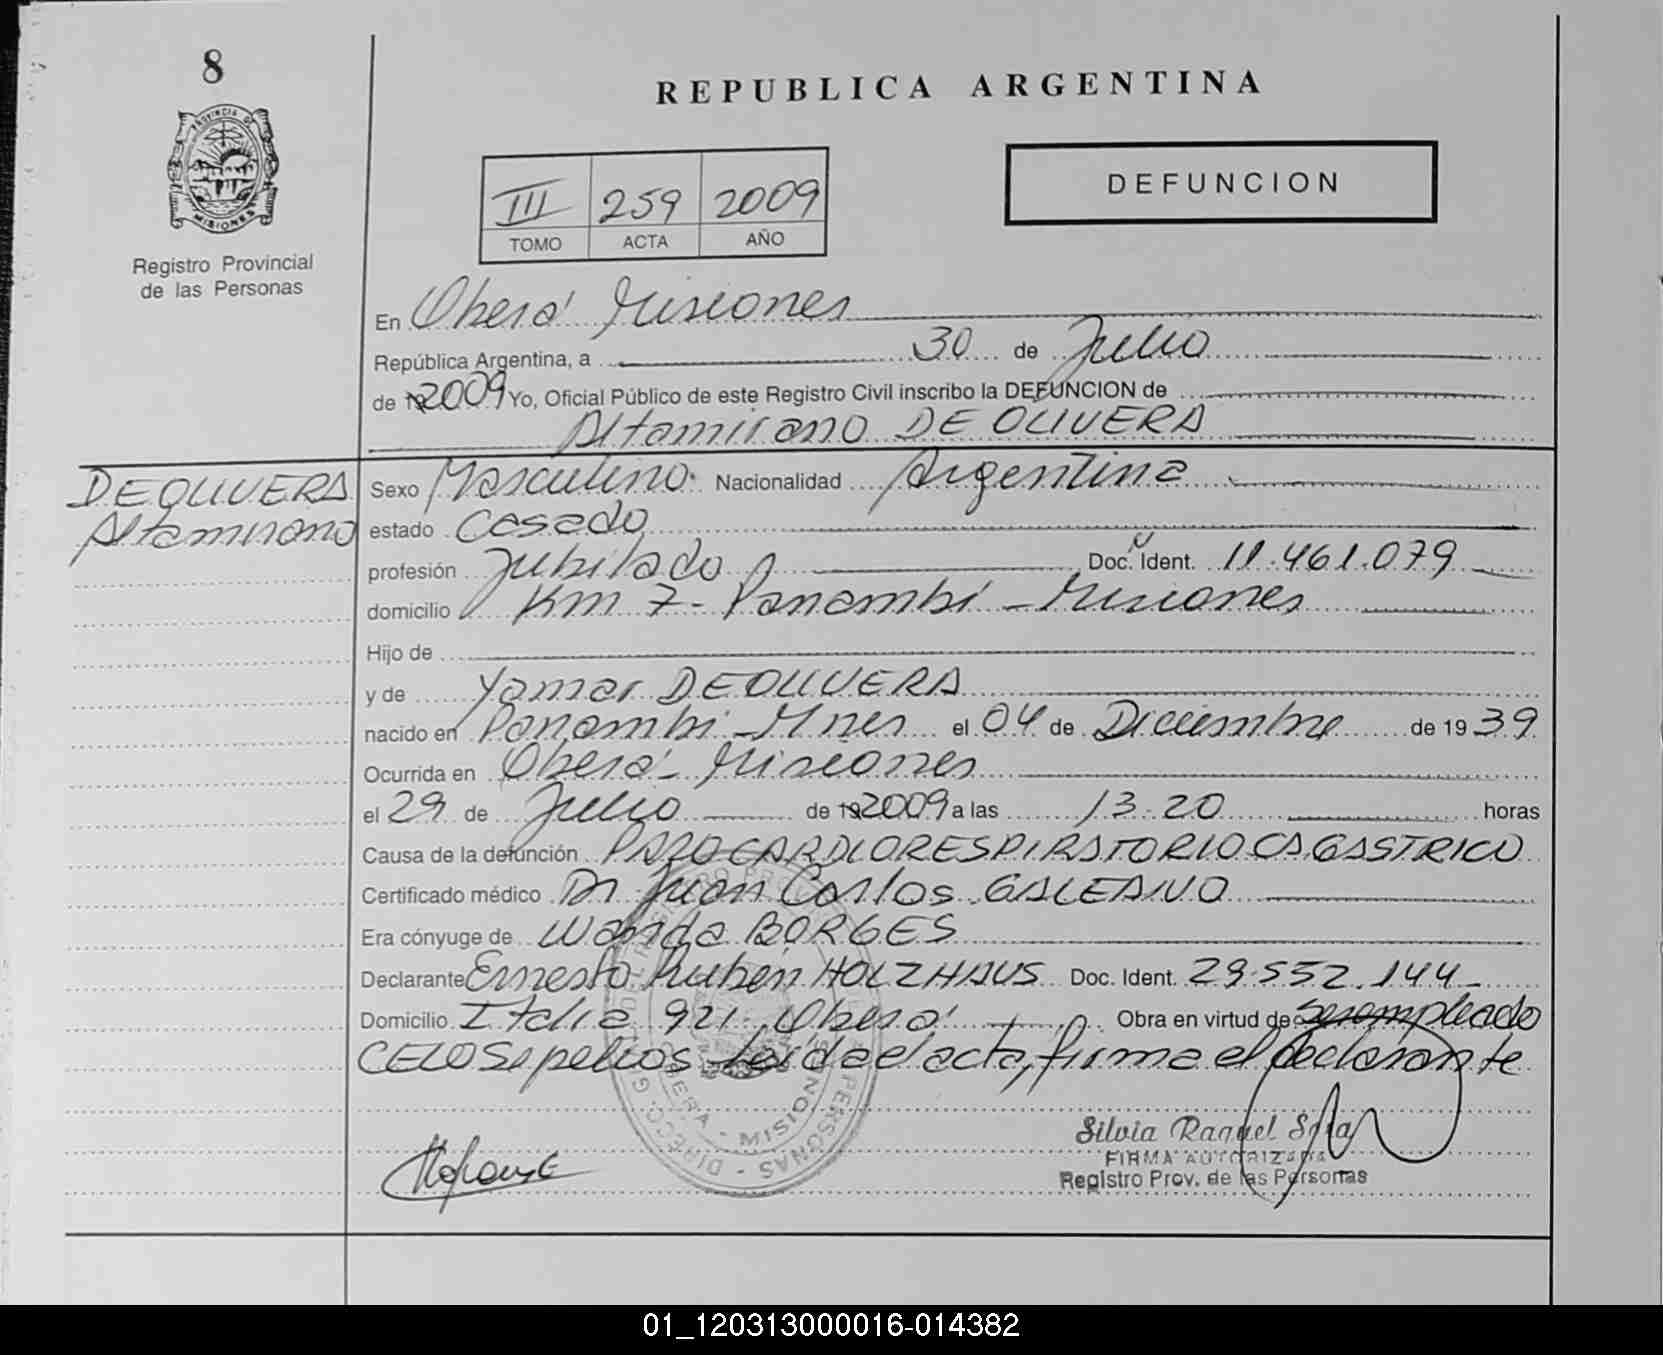 8
REPUBLICA ARGENTINA
PROVINCIA DE
MISIONES
III 259 2009
TOMO ACTA AÑO
DEFUNCION
Registro Provincial
de las Personas
En Oberá Misiones
República Argentina, a 30 de Julio
de 19 2009 Yo, Oficial Público de este Registro Civil inscribo la DEFUNCION de
Altamirano DE OLIVERA
DE OLIVERA
Altamirano
Sexo Masculino. Nacionalidad Argentina
estado Casado
profesión Jubilado Doc. Ident. 11.461.079
domicilio Km 7 - Panambí - Misiones
Hijo de
y de Yamar DE OLIVERA
nacido en Panambí - Mnes el 04 de Diciembre de 1939
Ocurrida en Oberá - Misiones
el 29 de Julio de 19 2009 a las 13.20 horas
Causa de la defunción PARO CARDIORESPIRATORIO CA GASTRICO
Certificado médico Dr. Juan Carlos GALEANO
Era cónyuge de Wanda BORGES
Declarante Ernesto Ruben HOLZHAUS Doc. Ident. 29.552.144
Domicilio Italia 921, Oberá Obra en virtud de ser empleado
CELO Sepelios Leída el acta, firma el declarante
Silvia Raquel
FIRMA AUTORIZADA
Registro Prov. de las Personas
OBERA - MISIONES
01_120313000016-014382